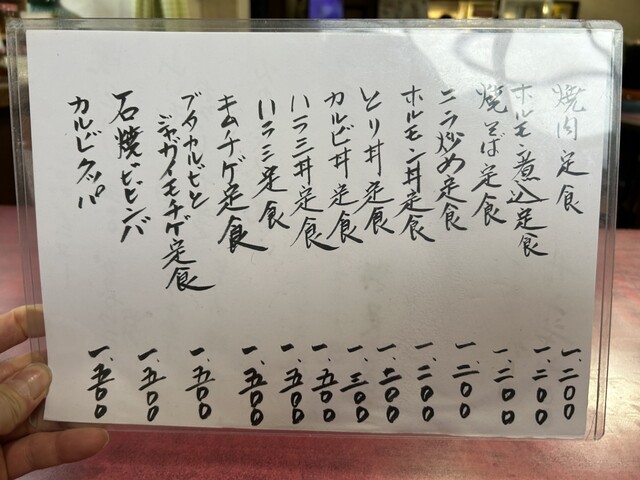 焼肉定食 一.二〇〇
ホルモン煮込定食 一.二〇〇
焼そば定食 一.二〇〇
ニラ炒め定食 一.二〇〇
ホルモン丼定食 一.二〇〇
とり丼定食 一.二〇〇
カルビ丼定食 一.三〇〇
ハラミ丼定食 一.五〇〇
ハラミ定食 一.五〇〇
キムチゲ定食 一.五〇〇
ブタカルビと
ジャガイモチゲ定食 一.五〇〇
石焼ビビンバ 一.五〇〇
カルビクッパ 一.五〇〇